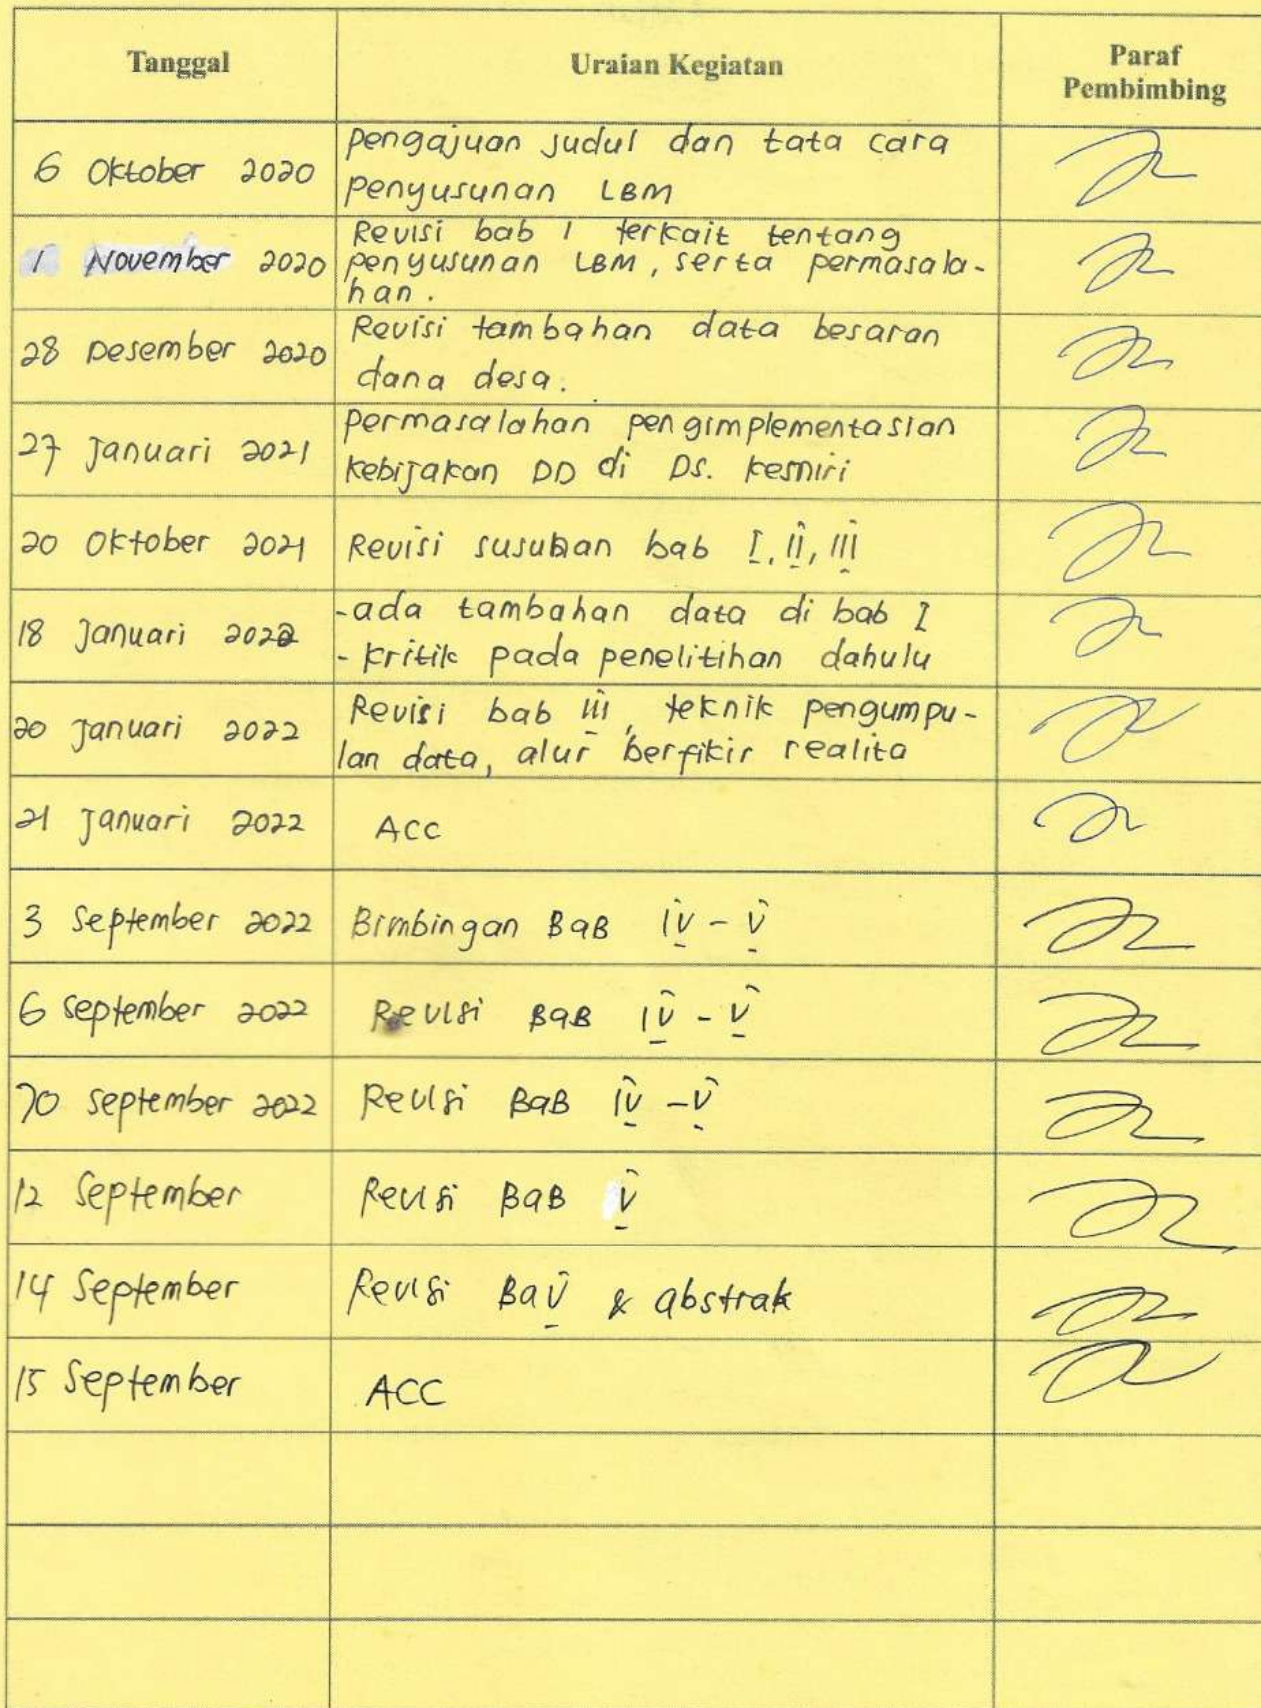 Tanggal
Uraian Kegiatan
Paraf
Pembimbing
6 Oktober 2020
Pengajuan judul dan tata cara
penyusunan LBM
1 November 2020
Revisi bab 1 terkait tentang
penyusunan LBM, serta permasala-
han.
28 Desember 2020
Revisi tambahan data besaran
dana desa.
27 Januari 2021
Permasalahan pengimplementasian
kebijakan DD di Ds. Kemiri
20 Oktober 2021
Revisi susunan bab I, II, III
18 Januari 2022
-ada tambahan data di bab I
- kritik pada penelitihan dahulu
20 Januari 2022
Revisi bab III, teknik pengumpu-
lan data, alur berfikir realita
21 Januari 2022
ACC
3 September 2022
Bimbingan BaB IV - V
6 September 2022
Revisi BaB IV - V
10 September 2022
Revisi BaB IV - V
12 September
Revisi BaB V
14 September
Revisi BaV & abstrak
15 September
ACC